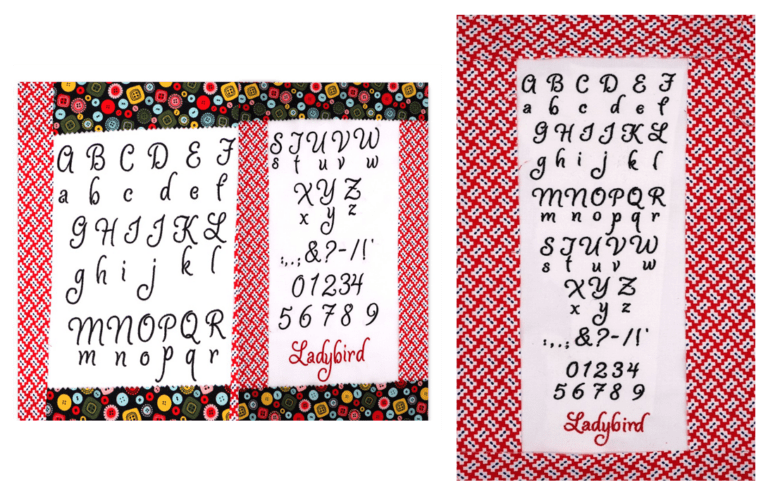 A B C D E F
a b c d e f
G H I J K L
g h i j k l
M N O P Q R
m n o p q r
S T U V W
s t u v w
X Y Z
x y z
:,.;&?-/!'
01234
56789
Ladybird
A B C D E F
a b c d e f
G H I J K L
g h i j k l
M N O P Q R
m n o p q r
S T U V W
s t u v w
X Y Z
x y z
:,.;&?-/!'
01234
56789
Ladybird